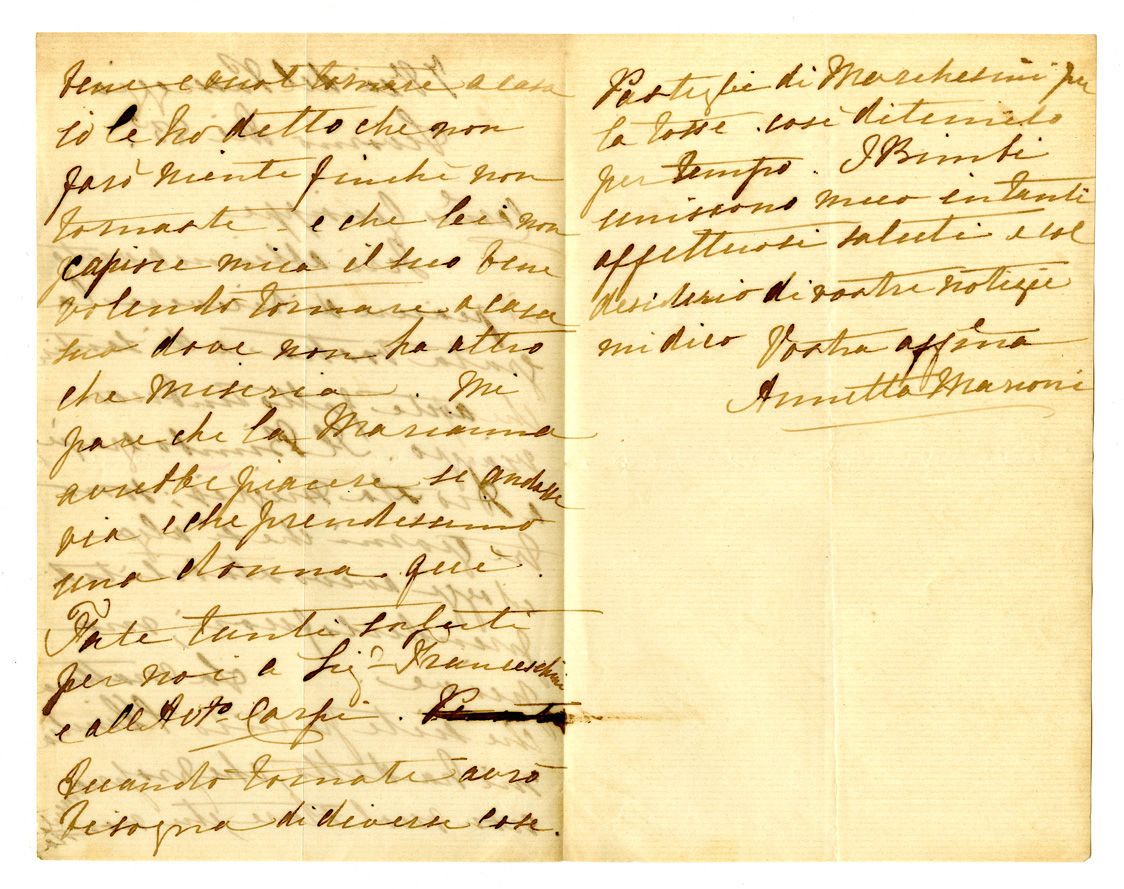 bene e vuol tornare a casa
io le ho detto che non
farò niente finchè non
tornate e che lei non
capisce mica il suo bene
volendo tornare a casa
sua dove non ha altro
che miseria. Mi
pare che la Marianna
avrebbe piacere se andasse
via e che prendessimo
una donna quì.
Fate tanti saluti
per noi a Sigr Franceschini
e all Avto Carpi.
Quando tornate avrò
bisogna di diverse cose.
Pastiglie di Marchesini per
la tosse. così ditemelo
per tempo. I Bimbi
uniscono meco in tanti
affettuosi saluti e col
desiderio di vostre notizie
mi dico Vostra affena
Annetta Marioni